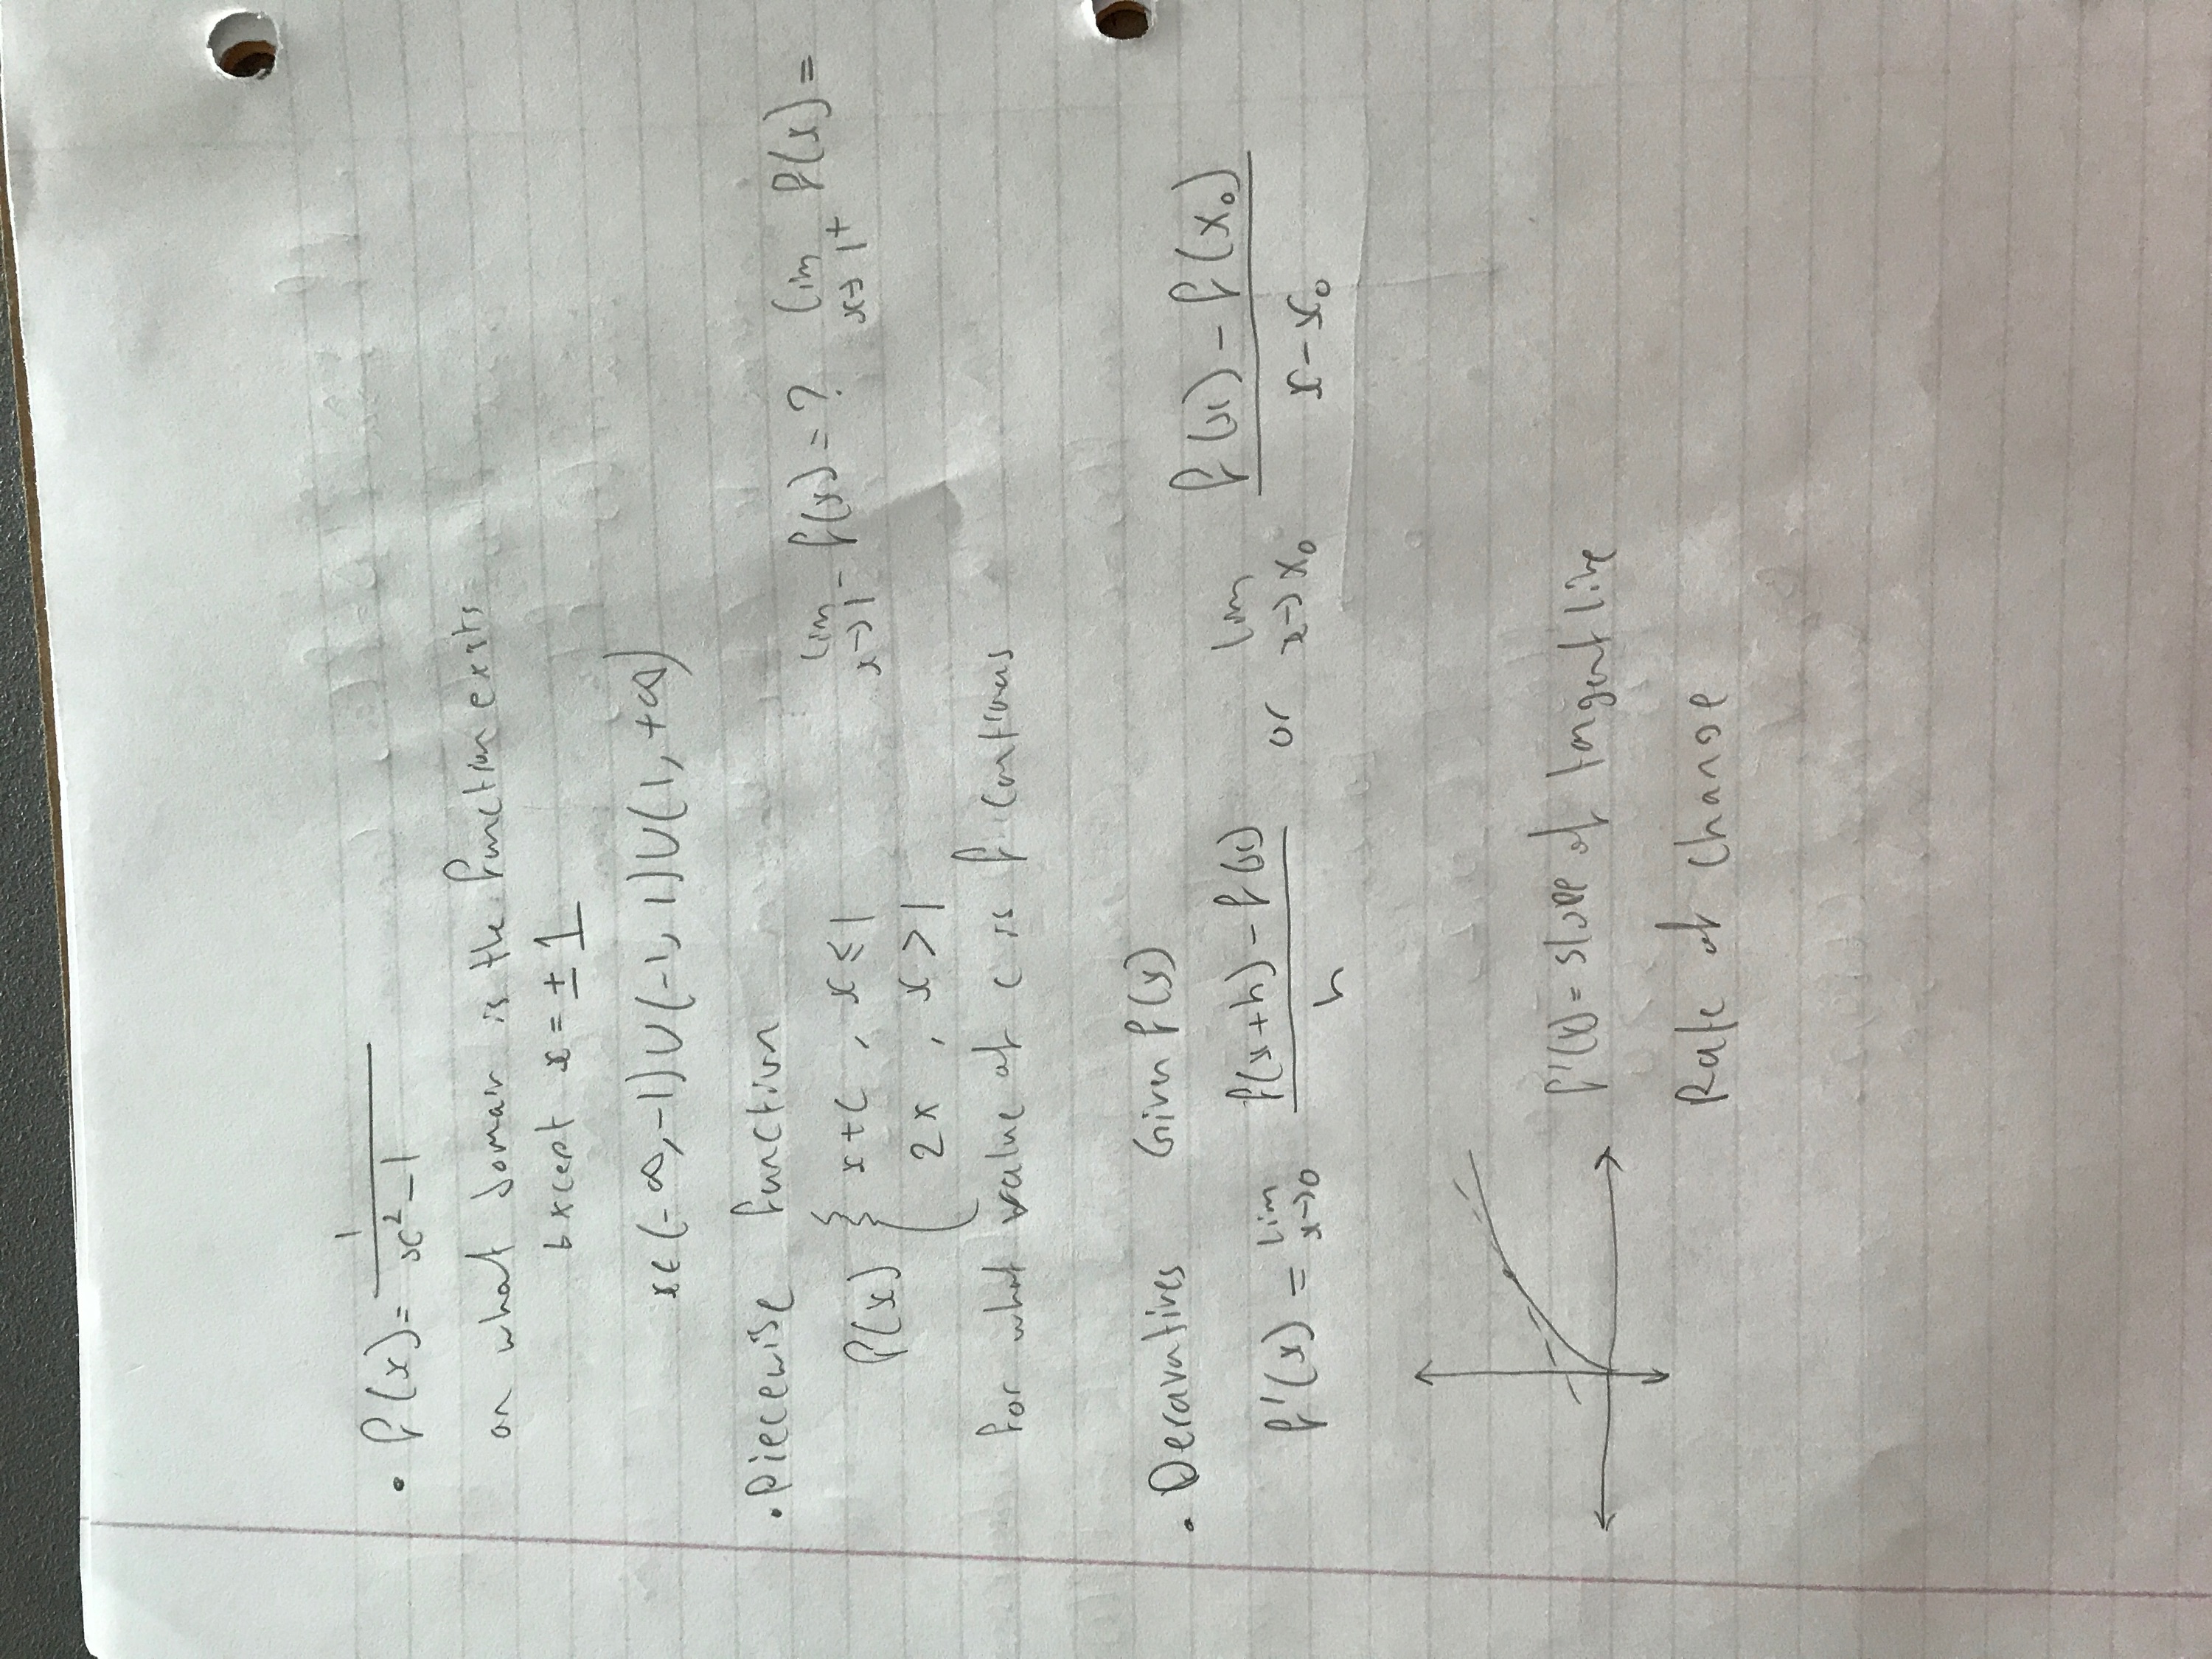 • f(x) = 1/(x² - 1)
on what domain is the function exists
except x = ± 1
x ∈ (-∞, -1) ∪ (-1, 1) ∪ (1, +∞)
• Piecewise function
f(x) { x + c , x ≤ 1
2x , x > 1
lim x→1⁻ f(x) = ? lim x→1⁺ f(x) =
for what value of c is f continous
• Deravatives Given f(x)
f'(x) = lim x→0 (f(x+h) - f(x))/h or lim x→x₀ (f(x) - f(x₀))/(x - x₀)
f'(x) = slope of tangent line
Rate of change